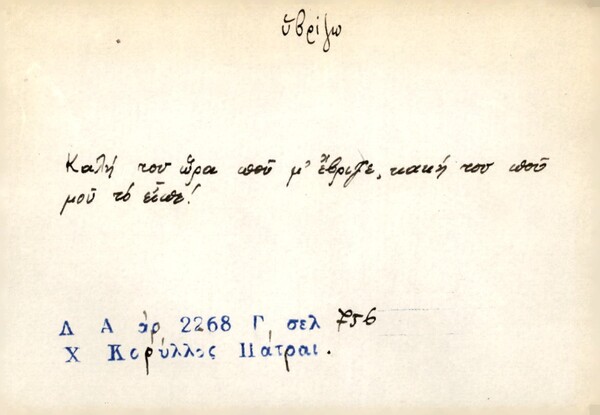 ὑβρίζω
Καλή του ὥρα ποῦ μ' ἔβριζε, κακή του ποῦ
μοῦ τό εἶπε!
Λ Α ἀρ 2268 Γ, σελ 756
Χ Κορύλλος Πάτραι.